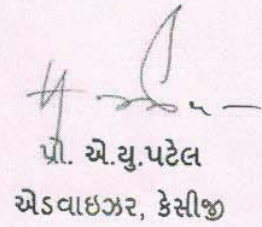 પ્રો. એ.યુ.પટેલ
એડવાઇઝર, કેસીજી